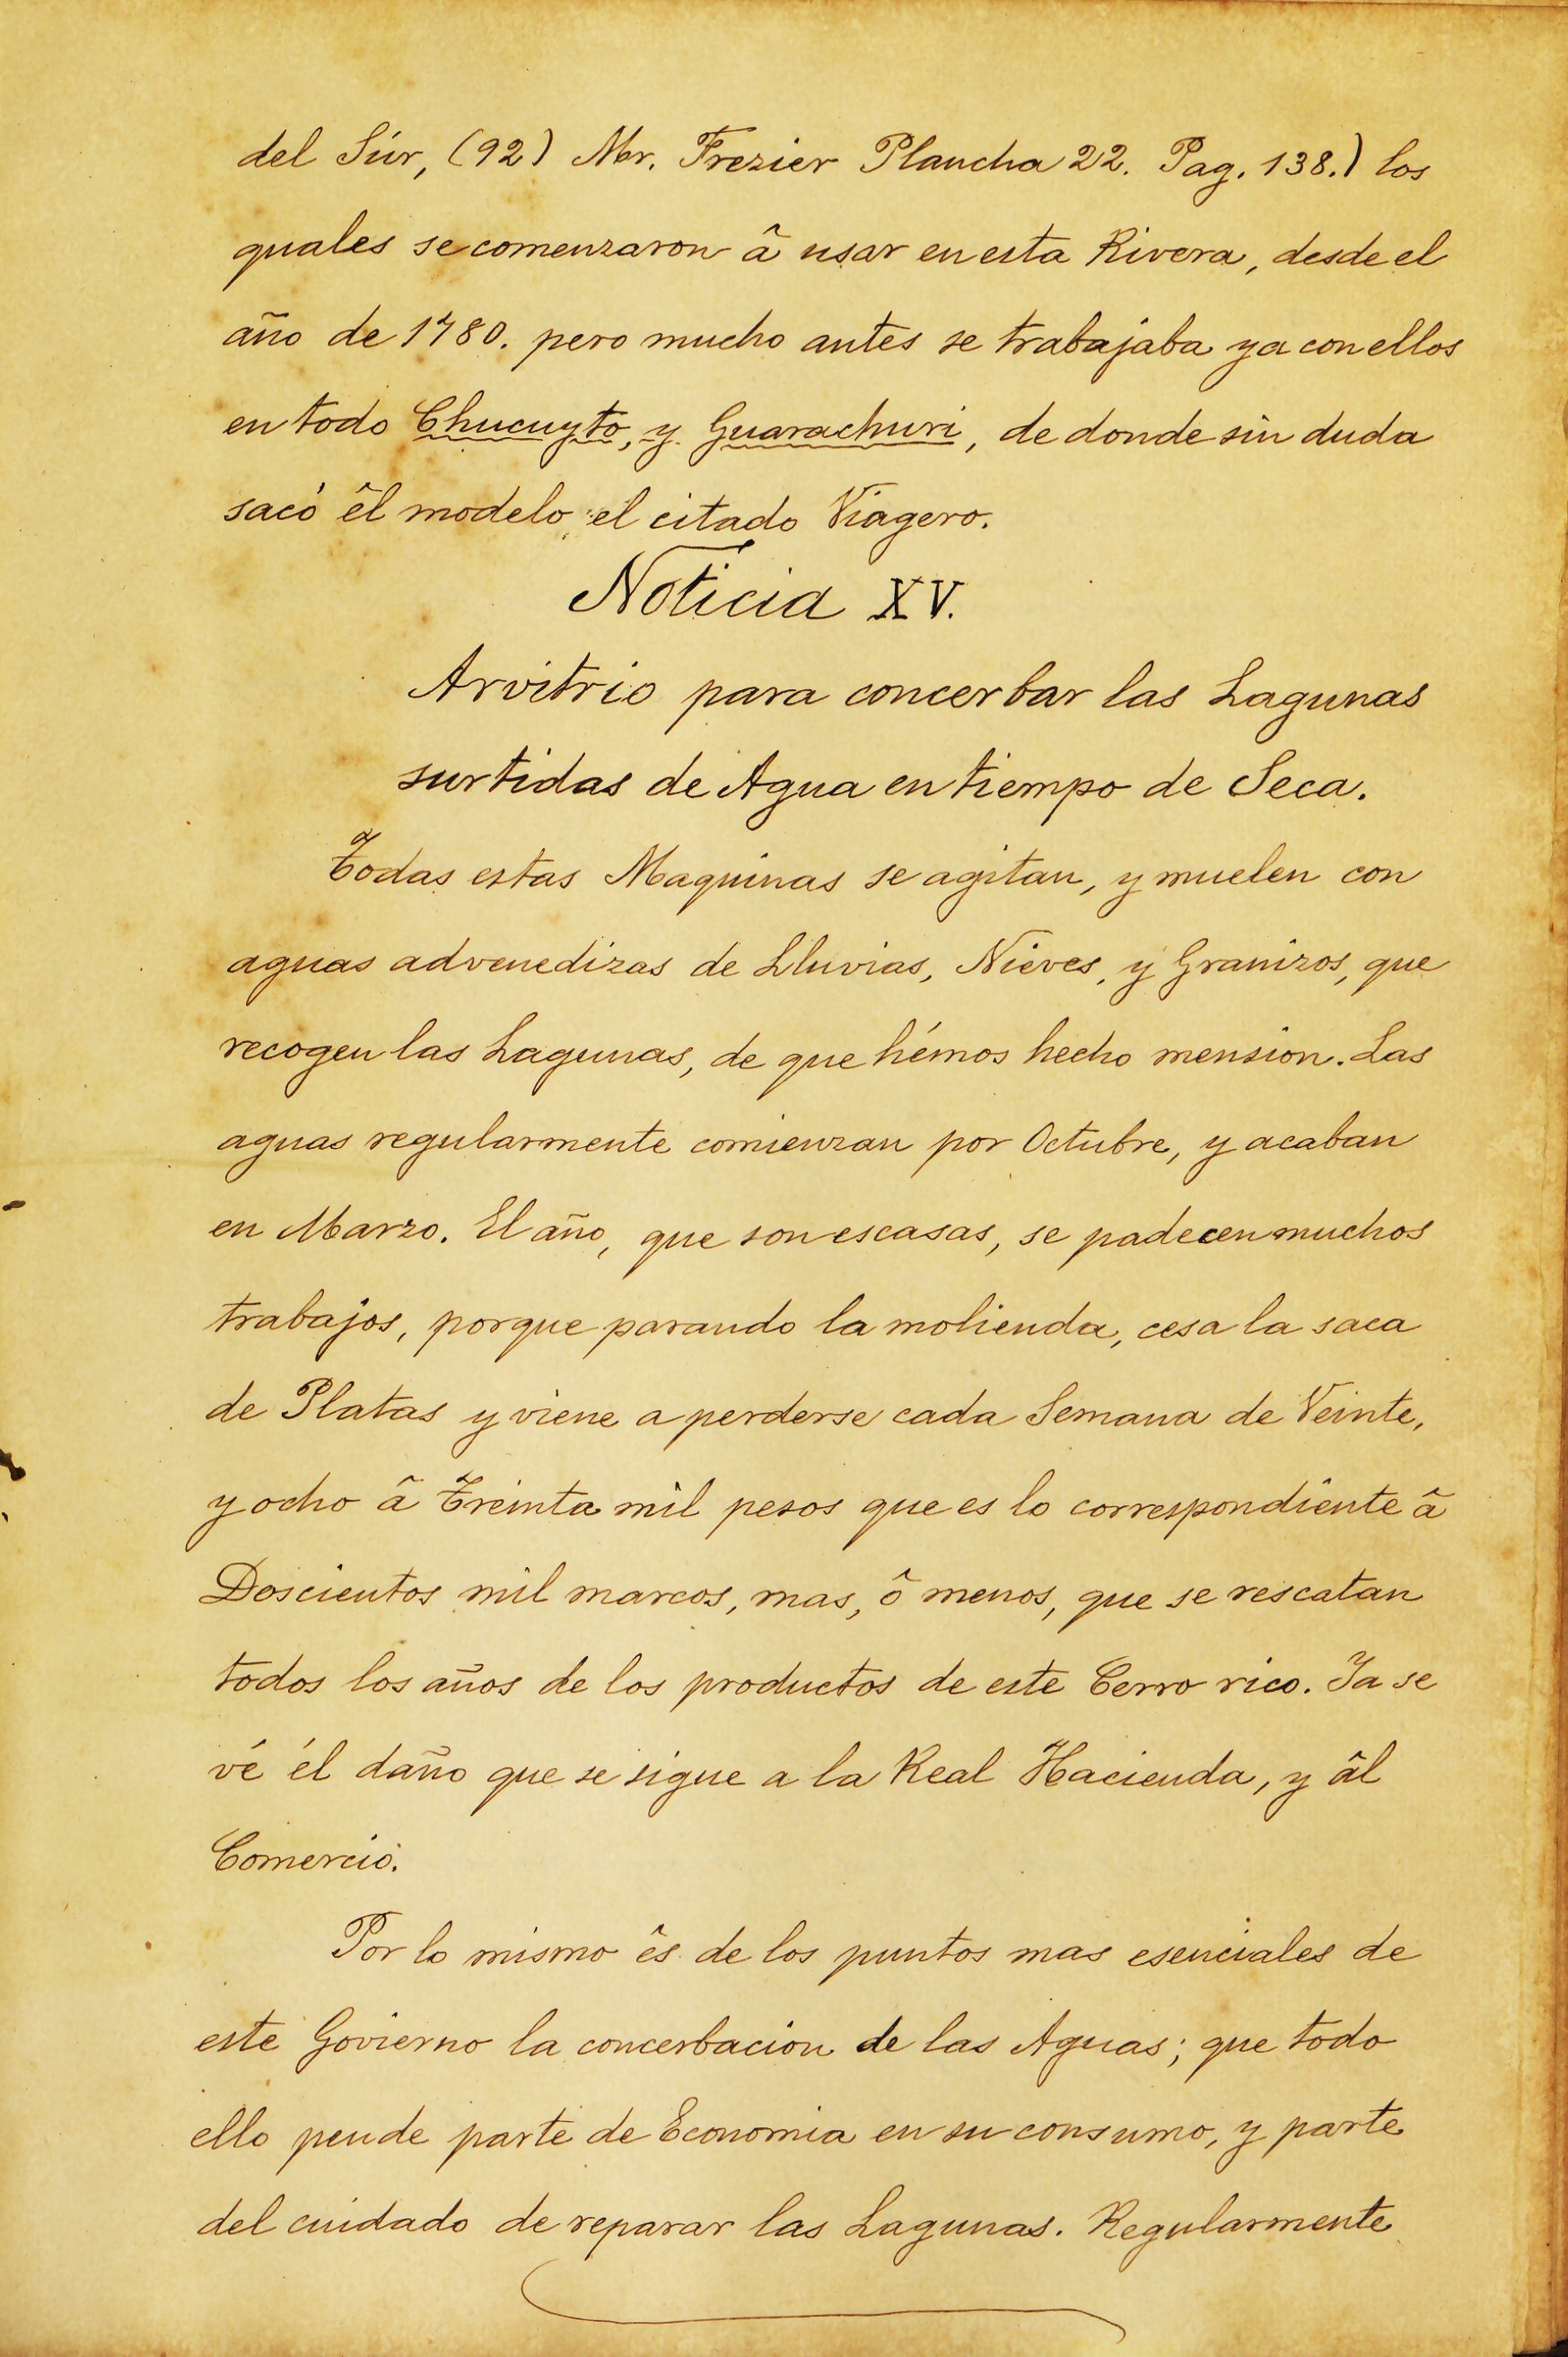 del Súr, (92) Mr. Frezier Plancha 22. Pag. 138.) los
quales se comenzaron â usar en esta Rivera, desde el
año de 1780. pero mucho antes se trabajaba ya con ellos
en todo Chucuyto, y Guarachuri, de donde sin duda
sacó êl modelo el citado Viagero.
Noticia XV.
Arvitrio para concerbar las Lagunas
surtidas de Agua en tiempo de Seca.
Todas estas Maquinas se agitan, y muelen con
aguas advenedizas de Lluvias, Nieves, y Granizos, que
recogen las Lagunas, de que hémos hecho mension. Las
aguas regularmente comienzan por Octubre, y acaban
en Marzo. El año, que son escasas, se padecen muchos
trabajos, porque parando la molienda, cesa la saca
de Platas y viene a perderse cada Semana de Veinte,
y ocho â Treinta mil pesos que es lo correspondiente â
Doscientos mil marcos, mas, ô menos, que se rescatan
todos los años de los productos de este Cerro rico. Ya se
vé él daño que se sigue a la Real Hacienda, y âl
Comercio.
Por lo mismo ês de los puntos mas esenciales de
este Govierno la concerbacion de las Aguas; que todo
ello pende parte de Economia en su consumo, y parte
del cuidado de reparar las Lagunas. Regularmente